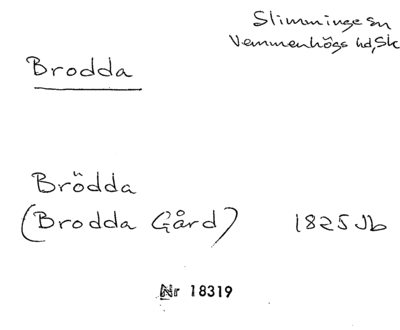 Slimminge sn
Vemmenhögs hd, Sk
Brodda
Brödda
(Brodda Gård) 1825 Jb
Nr 18319